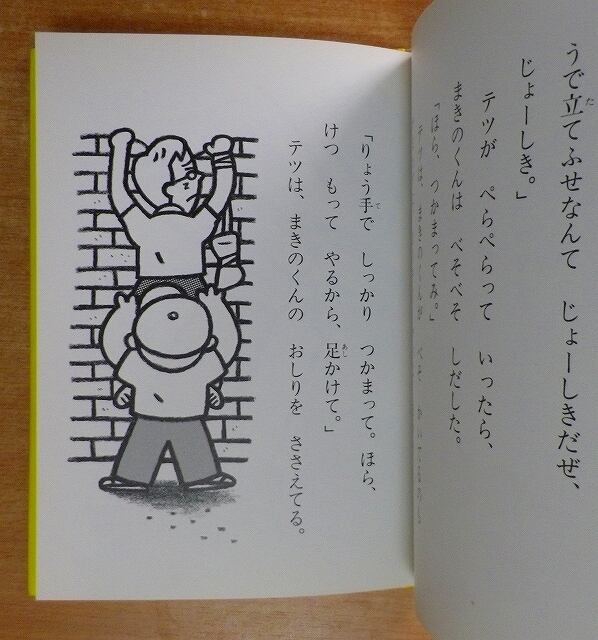 うで立てふせなんて　じょーしきだぜ、
じょーしき。」
テツが　ぺらぺらって　いったら、
まきのくんは　べそべそ　しだした。
「ほら、つかまってみ。」
テツは、まきのくんが　べそ
「りょう手で　しっかり　つかまって。ほら、
けつ　もって　やるから、足かけて。」
テツは、まきのくんの　おしりを　ささえてる。